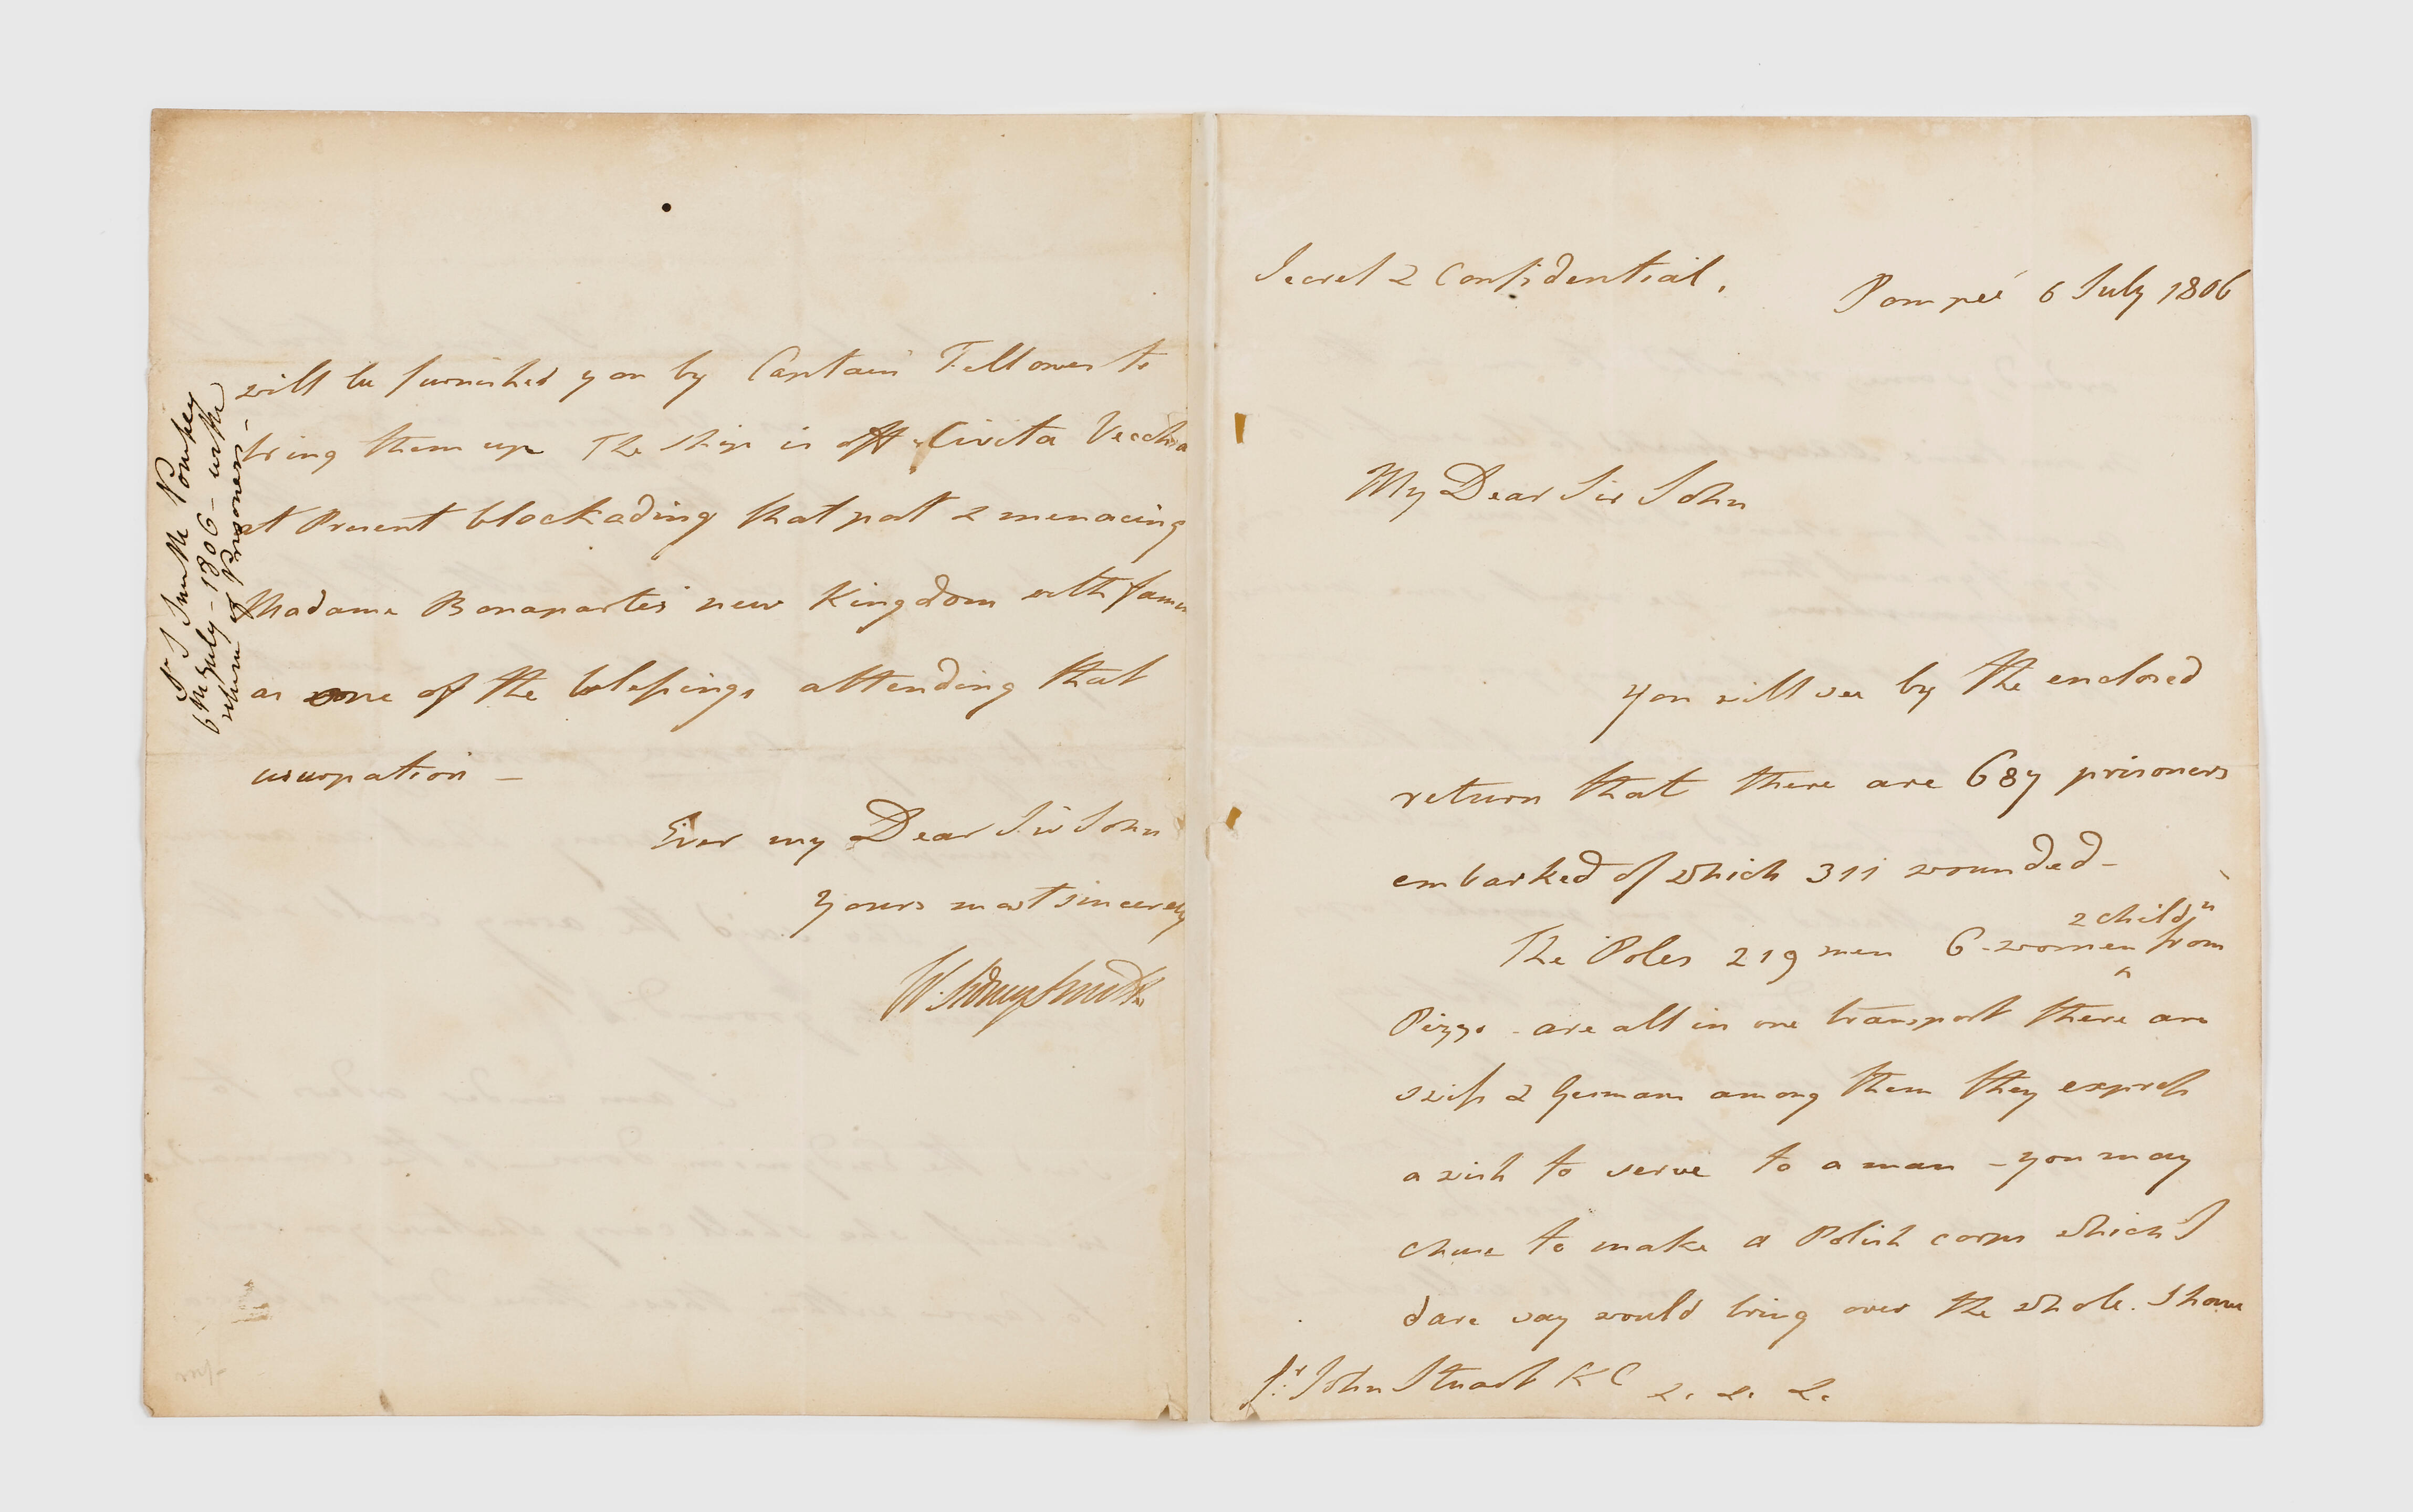 Secret & Confidential.
Pompeé 6 July 1806
My Dear Sir John
you will see by the enclosed
return that there are 687 prisoners
embarked of which 311 wounded -
2 child^n
The Poles 219 men 6 women from
Pizzo - are all in one transport there are
swiss & Germans among them they express
a wish to serve to a man - you may
chuse to make a Polish corps which I
dare say would bring over the whole. I have
S^r. John Stuart K C &. &. &.
will be furnished you by Captain Fellowes to
bring them up The ship is off Civita Vecchia
at Present blockading that port & menacing
Madame Bonapartes new Kingdom with famine
as one of the blessings attending that
usurpation -
Ever my Dear Sir John
Yours most sincerely
W. Sidney Smith
S^r S Smith Pompey
6th July - 1806 - with
return of Prisoners -